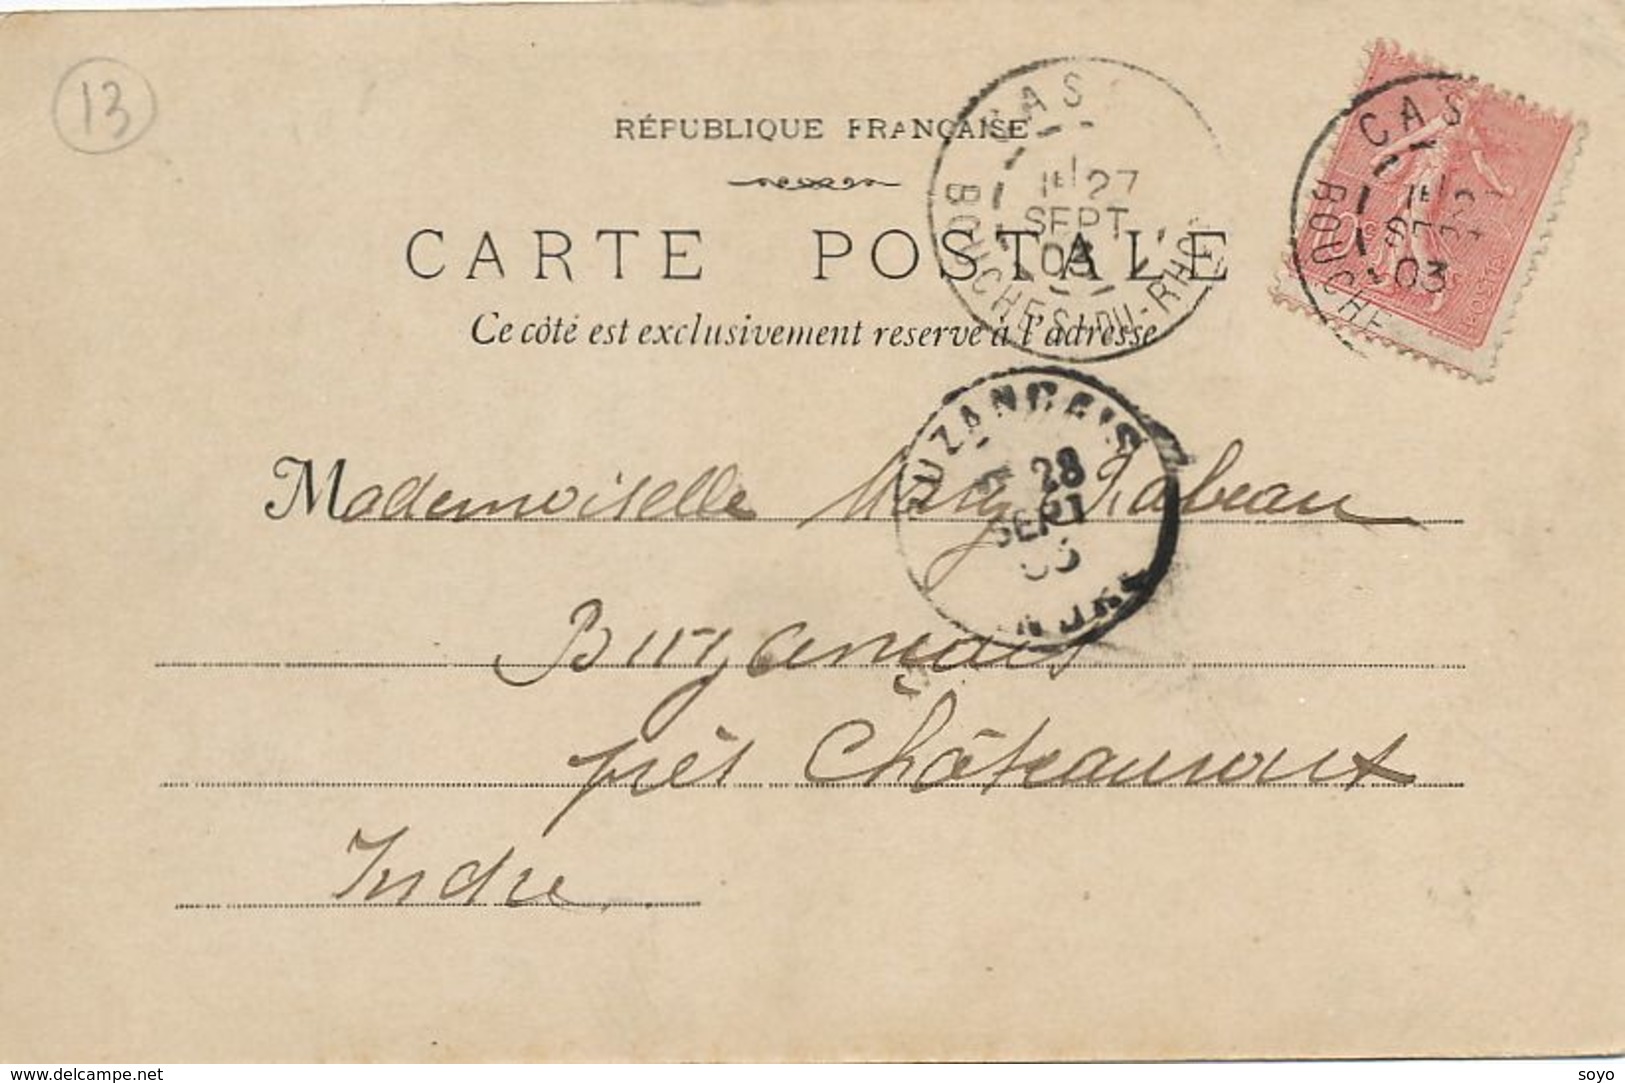 13
RÉPUBLIQUE FRANÇAISE
CARTE POSTALE
Ce côté est exclusivement reservé à l'adresse
CAS
1E 27
SEPT
03
BOUCHES-DU-RHÔNE
CAS
1E 2
SEPT
03
BOUCHE
POSTES
BUZANCAIS
28
SEPT
03
INDRE
Mademoiselle Mary Rabeau
Buzançais
près Châteauroux
Indre
www.delcampe.net
soyo